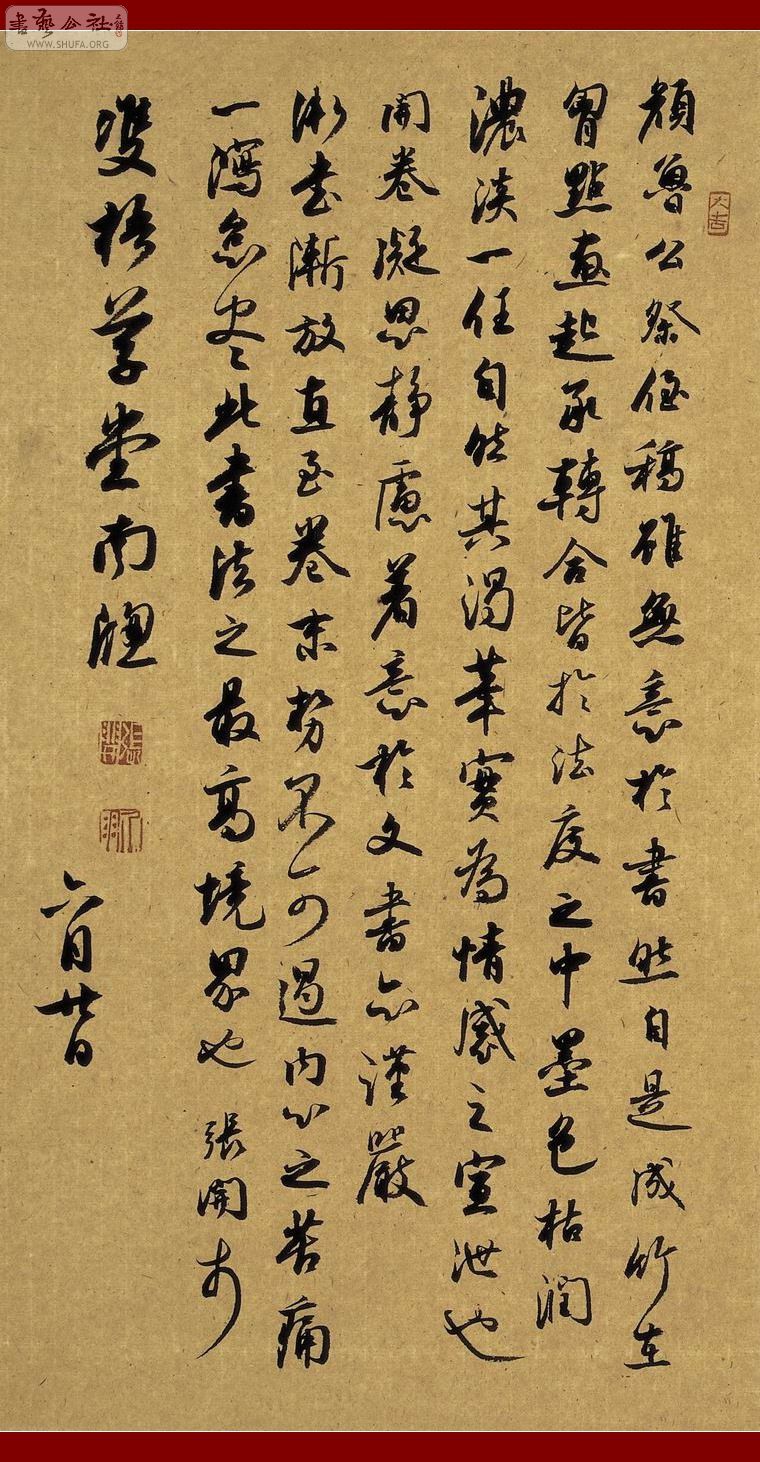 書藝公社
WWW.SHUFA.ORG
大吉
顔魯公祭侄稿雖無意於書然自是成竹在
胷點畫起承轉合皆於法度之中墨色枯潤
濃淡一任自然其渴筆實為情感之宣泄也
開卷凝思静慮着意於文書亦謹嚴
漸書漸放直至卷末勢不可遏内心之苦痛
一瀉怠尽此書法之最高境界也 張開
雙梧草堂南牕
六月廿日